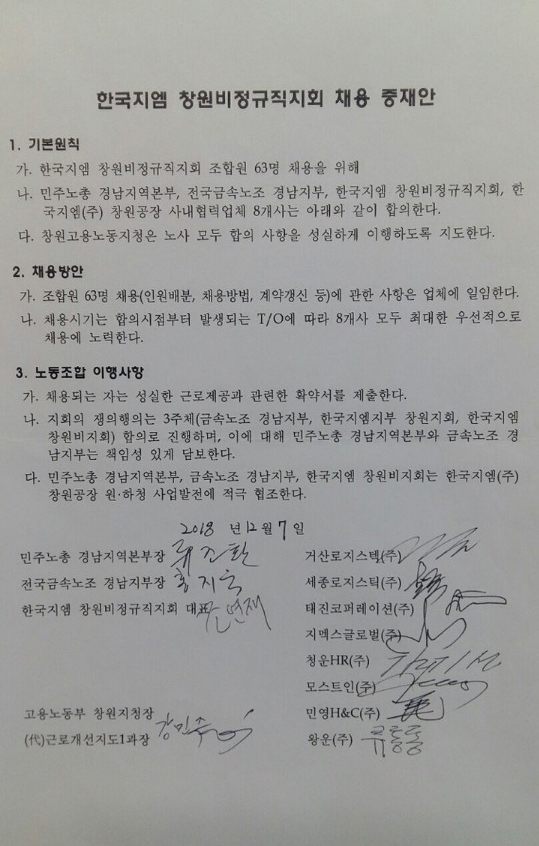 한국지엠 창원비정규직지회 채용 중재안
1. 기본원칙
가. 한국지엠 창원비정규직지회 조합원 63명 채용을 위해
나. 민주노총 경남지역본부, 전국금속노조 경남지부, 한국지엠 창원비정규직지회, 한
국지엠(주) 창원공장 사내협력업체 8개사는 아래와 같이 합의한다.
다. 창원고용노동지청은 노사 모두 합의 사항을 성실하게 이행하도록 지도한다.
2. 채용방안
가. 조합원 63명 채용(인원배분, 채용방법, 계약갱신 등)에 관한 사항은 업체에 일임한다.
나. 채용시기는 합의시점부터 발생되는 T/O에 따라 8개사 모두 최대한 우선적으로
채용에 노력한다.
3. 노동조합 이행사항
가. 채용되는 자는 성실한 근로제공과 관련한 확약서를 제출한다.
나. 지회의 쟁의행의는 3주체(금속노조 경남지부, 한국지엠지부 창원지회, 한국지엠
창원비지회) 합의로 진행하며, 이에 대해 민주노총 경남지역본부와 금속노조 경
남지부는 책임성 있게 담보한다.
다. 민주노총 경남지역본부, 금속노조 경남지부, 한국지엠 창원비지회는 한국지엠(주)
창원공장 원·하청 사업발전에 적극 협조한다.
2018 년 12 월 7 일
민주노총 경남지역본부장 류조환
전국금속노조 경남지부장 홍지욱
한국지엠 창원비정규직지회 대표
거산로지스텍(주)
세종로지스틱(주)
태진코퍼레이션(주)
지멕스글로벌(주)
청운HR(주)
모스트인(주)
민영H&C(주)
왕운(주)
고용노동부 창원지청장
(代)근로개선지도1과장